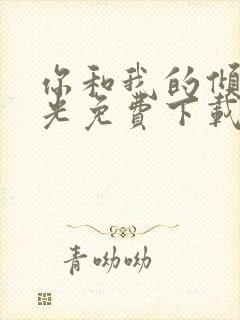 你和我的倾
光免費下載
青呦呦